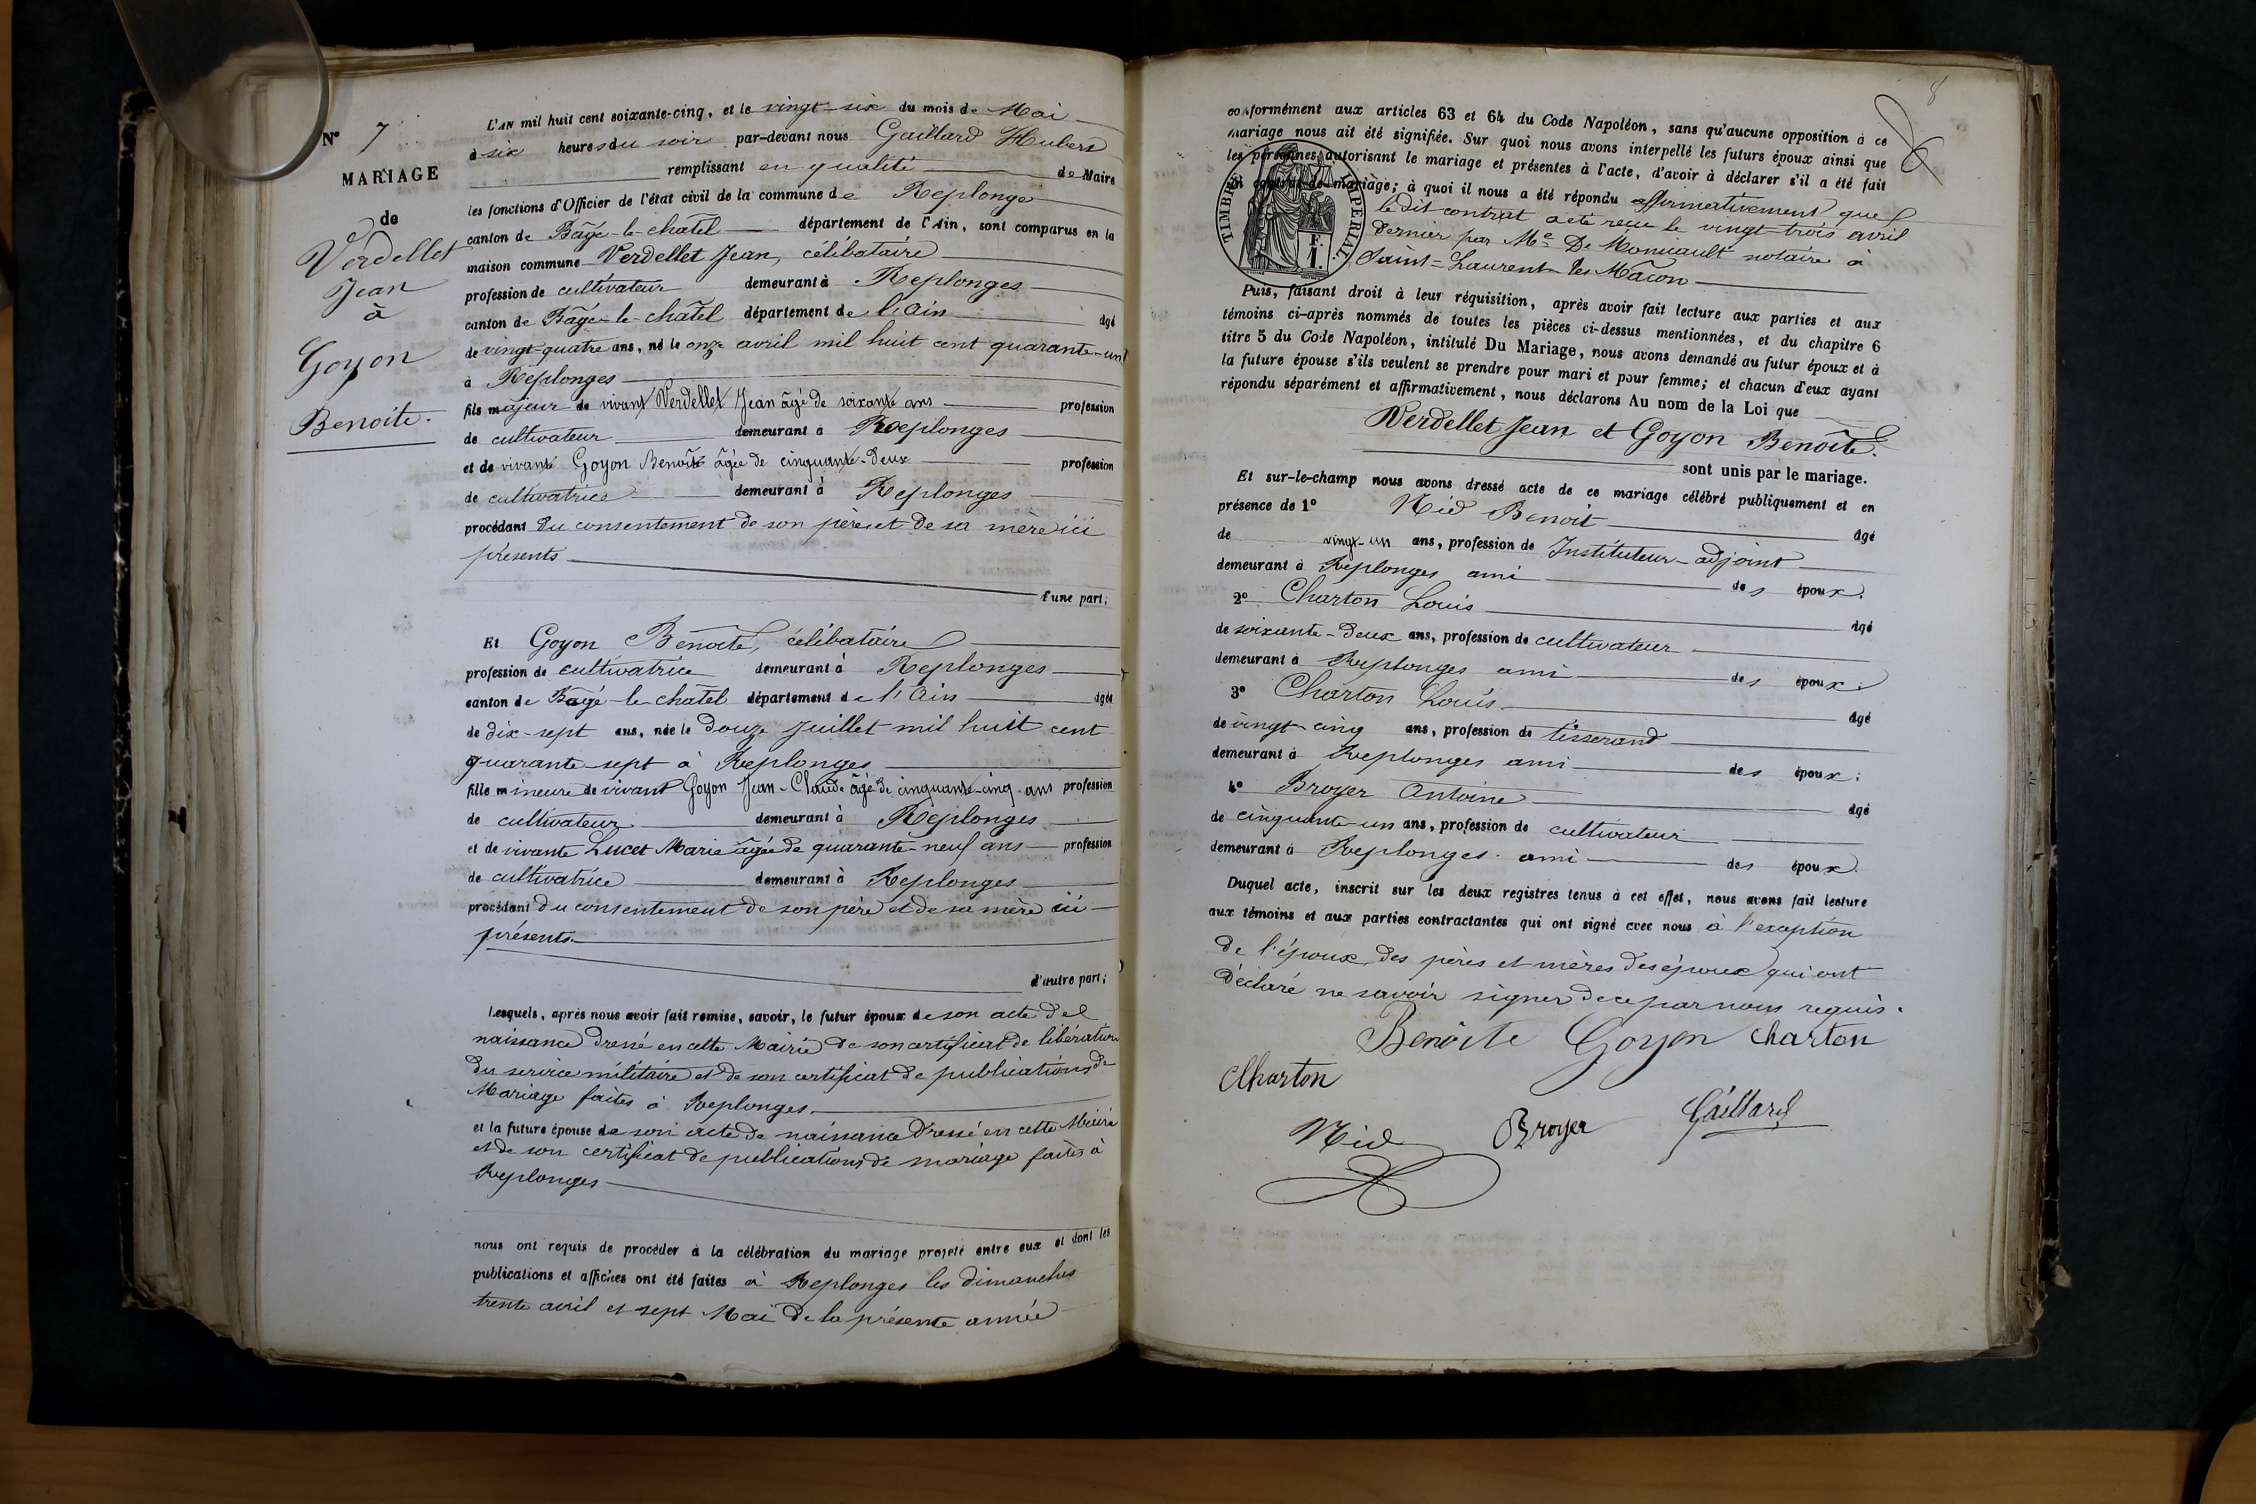 N° 7
MARIAGE
de
Verdellet
Jean
à
Goyon
Benoite.
L'AN mil huit cent soixante-cinq, et le vingt-six du mois de Mai
à six heures du soir par-devant nous Gaillard Hubert
remplissant en qualité de Maire
les fonctions d'Officier de l'état civil de la commune de Replonges
canton de Bâgé-le-châtel département de l'Ain, sont comparus en la
maison commune Verdellet Jean, célibataire
profession de cultivateur demeurant à Replonges
canton de Bâgé-le-châtel département de l'Ain âgé
de vingt-quatre ans, né le onze avril mil huit cent quarante-un
à Replonges
fils majeur de vivant Verdellet Jean âgé de soixante ans profession
de cultivateur demeurant à Replonges
et de vivante Goyon Benoîte âgée de cinquante-deux profession
de cultivatrice demeurant à Replonges
procédant du consentement de son père et de sa mère ici
présents
d'une part;
Et Goyon Benoîte, célibataire
profession de cultivatrice demeurant à Replonges
canton de Bâgé-le-châtel département de l'Ain âgée
de dix-sept ans, née le douze juillet mil huit cent
quarante-sept à Replonges
fille mineure de vivant Goyon Jean-Claude âgé de cinquante-cinq ans profession
de cultivateur demeurant à Replonges
et de vivante Lucet Marie âgée de quarante-neuf ans profession
de cultivatrice demeurant à Replonges
procédant du consentement de son père et de sa mère ici
présents
d'autre part;
Lesquels, après nous avoir fait remise, savoir, le futur époux de son acte de
naissance dressé en cette Mairie de son certificat de libération
du service militaire et de son certificat de publications de
Mariage faites à Replonges.
et la future épouse de son acte de naissance dressé en cette Mairie
et de son certificat de publications de mariage faites à
Replonges
nous ont requis de procéder à la célébration du mariage projeté entre eux et dont les
publications et affiches ont été faites à Replonges les dimanches
trente avril et sept Mai de la présente année
8
conformément aux articles 63 et 64 du Code Napoléon, sans qu'aucune opposition à ce
mariage nous ait été signifiée. Sur quoi nous avons interpellé les futurs époux ainsi que
les personnes autorisant le mariage et présentes à l'acte, d'avoir à déclarer s'il a été fait
un contrat de mariage; à quoi il nous a été répondu affirmativement que
le dit contrat a été reçu le vingt-trois avril
dernier par Me De Monicault notaire à
Saint-Laurent-les-Mâcon
TIMBRE IMPERIAL
F.
1.
Puis, faisant droit à leur réquisition, après avoir fait lecture aux parties et aux
témoins ci-après nommés de toutes les pièces ci-dessus mentionnées, et du chapitre 6
titre 5 du Code Napoléon, intitulé Du Mariage, nous avons demandé au futur époux et à
la future épouse s'ils veulent se prendre pour mari et pour femme; et chacun d'eux ayant
répondu séparément et affirmativement, nous déclarons Au nom de la Loi que
Verdellet Jean et Goyon Benoîte.
sont unis par le mariage.
Et sur-le-champ nous avons dressé acte de ce mariage célébré publiquement et en
présence de 1° Nid Benoit âgé
de vingt-un ans, profession de Instituteur-adjoint
demeurant à Replonges ami des époux.
2° Charton Louis âgé
de soixante-deux ans, profession de cultivateur
demeurant à Replonges ami des époux.
3° Charton Louis âgé
de vingt-cinq ans, profession de tisserand
demeurant à Replonges ami des époux;
4° Broyer Antoine âgé
de cinquante-un ans, profession de cultivateur
demeurant à Replonges ami des époux.
Duquel acte, inscrit sur les deux registres tenus à cet effet, nous avons fait lecture
aux témoins et aux parties contractantes qui ont signé avec nous à l'exception
de l'époux, des pères et mères des époux qui ont
déclaré ne savoir signer de ce par nous requis.
Benoite Goyon Charton
Charton
Nid Broyer Gaillard